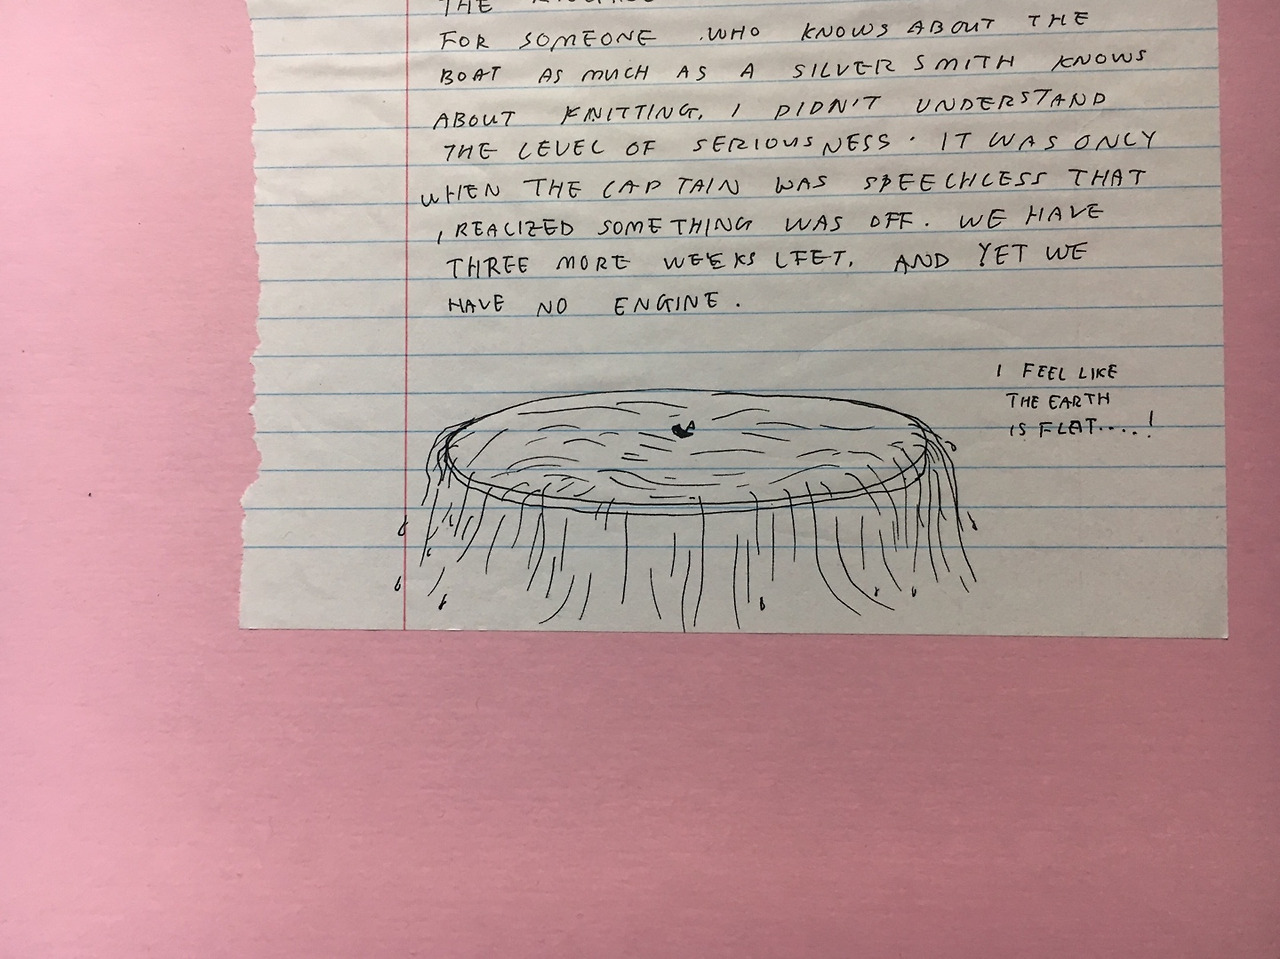 THE
FOR SOMEONE WHO KNOWS ABOUT THE
BOAT AS MUCH AS A SILVER SMITH KNOWS
ABOUT KNITTING, I DIDN'T UNDERSTAND
THE LEVEL OF SERIOUSNESS. IT WAS ONLY
WHEN THE CAPTAIN WAS SPEECHLESS THAT
I REALIZED SOMETHING WAS OFF. WE HAVE
THREE MORE WEEKS LFET, AND YET WE
HAVE NO ENGINE.
I FEEL LIKE
THE EARTH
IS FLAT....!